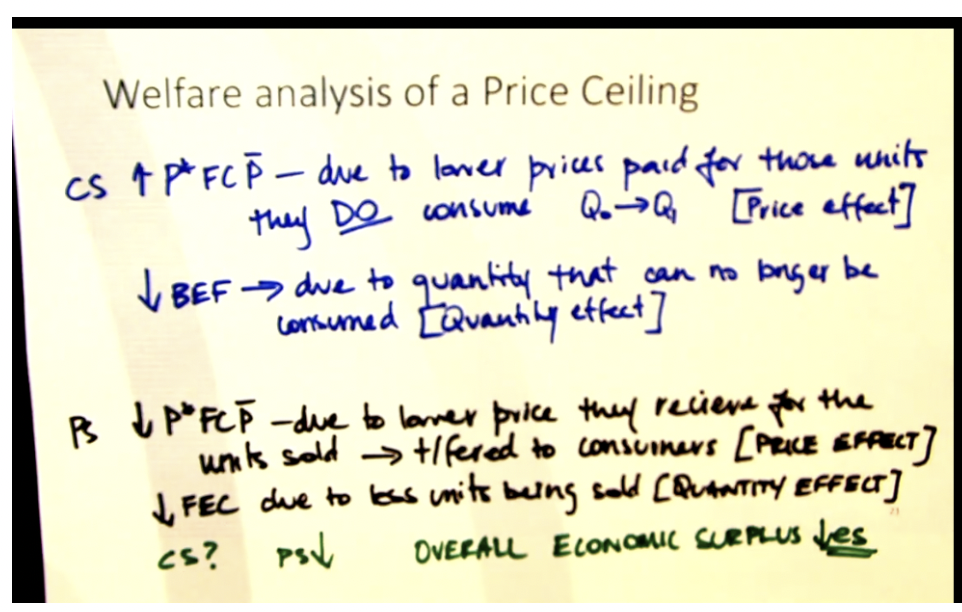 Welfare analysis of a Price Ceiling
CS ↑ P* FC P̄ — due to lower prices paid for those units
they DO consume Q₀→Q₁ [Price effect]
↓ BEF → due to quantity that can no longer be
consumed [Quantity effect]
PS ↓ P* FC P̄ – due to lower price they recieve for the
units sold → t/fered to consumers [PRICE EFFECT]
↓ FEC due to less units being sold [QUANTITY EFFECT]
CS? PS↓ OVERALL ECONOMIC SURPLUS ↓es